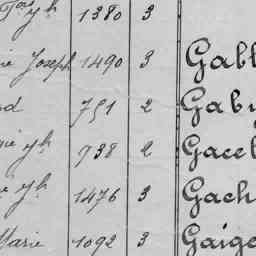 1380 3
Joseph 1490 3 Gabl
751 2 Gabr
738 2 Gacel
1476 3 Gach
Marie 1092 3 Gaige